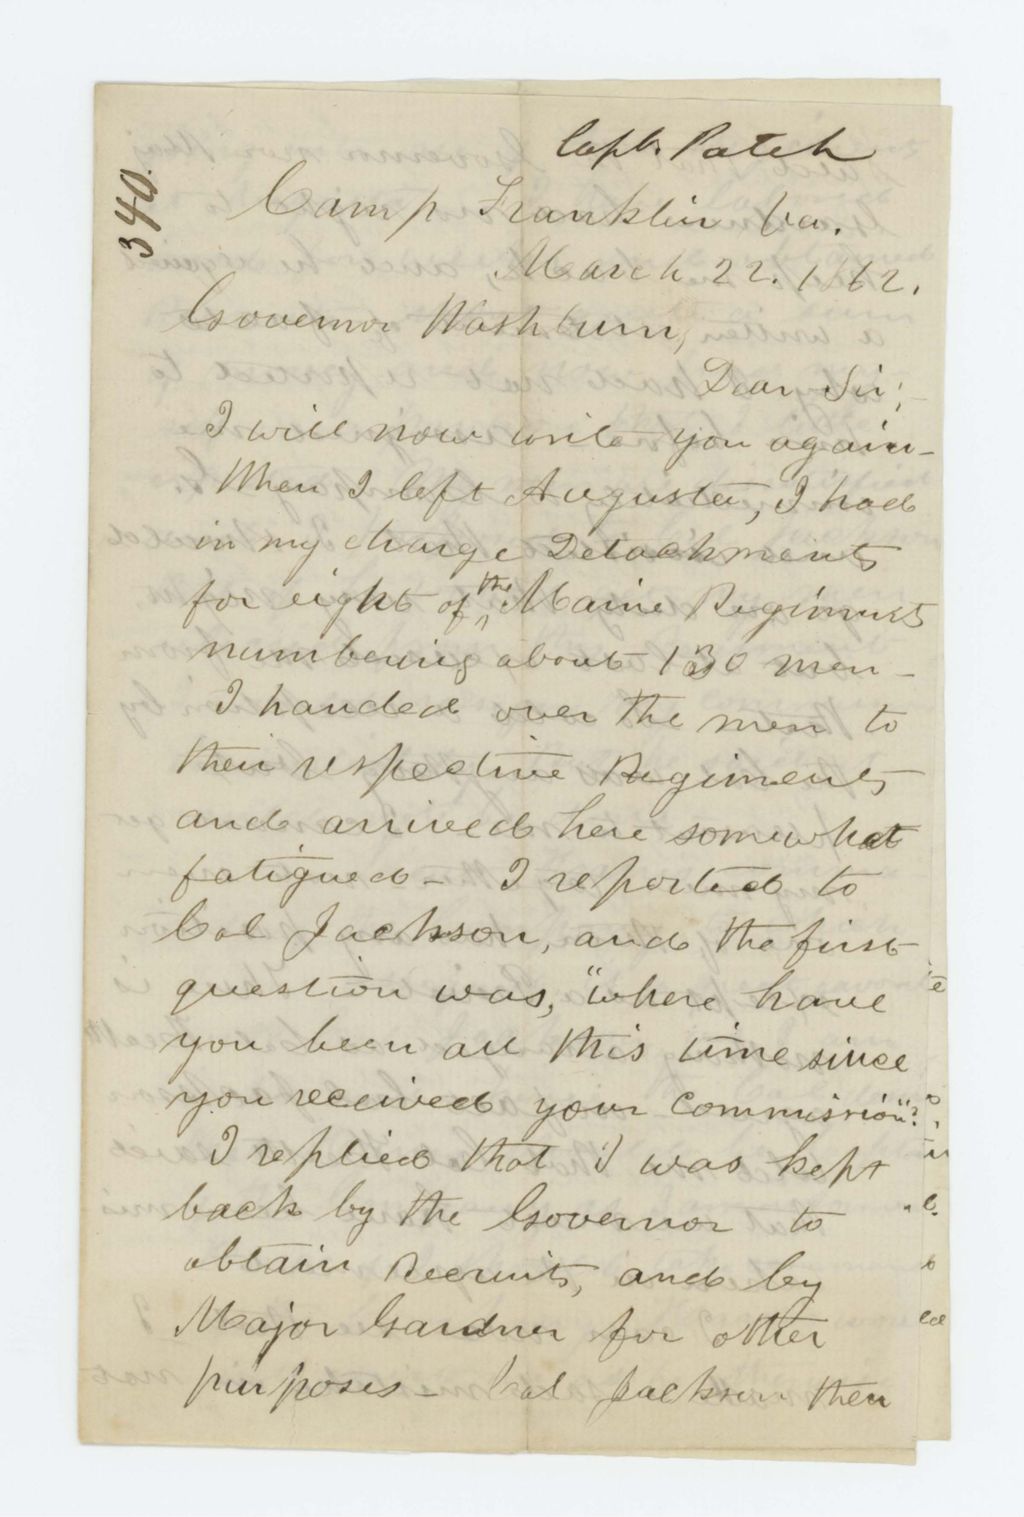 340.
Capt. Patch
Camp Franklin Va.
March 22. 1862.
Governor Washburn,
Dear Sir;
I will now write you again-
When I left Augusta, I had
in my charge Detachments
for eight of the Maine Regiments
numbering about 130 men-
I handed over the men to
their respective Regiments
and arrived here somewhat
fatigued- I reported to
Col Jackson, and the first
question was, "where have
you been all this time since
you received your commission"?
I replied that I was kept
back by the Governor to
obtain Recruits, and by
Major Gardner for other
purposes- Col Jackson then